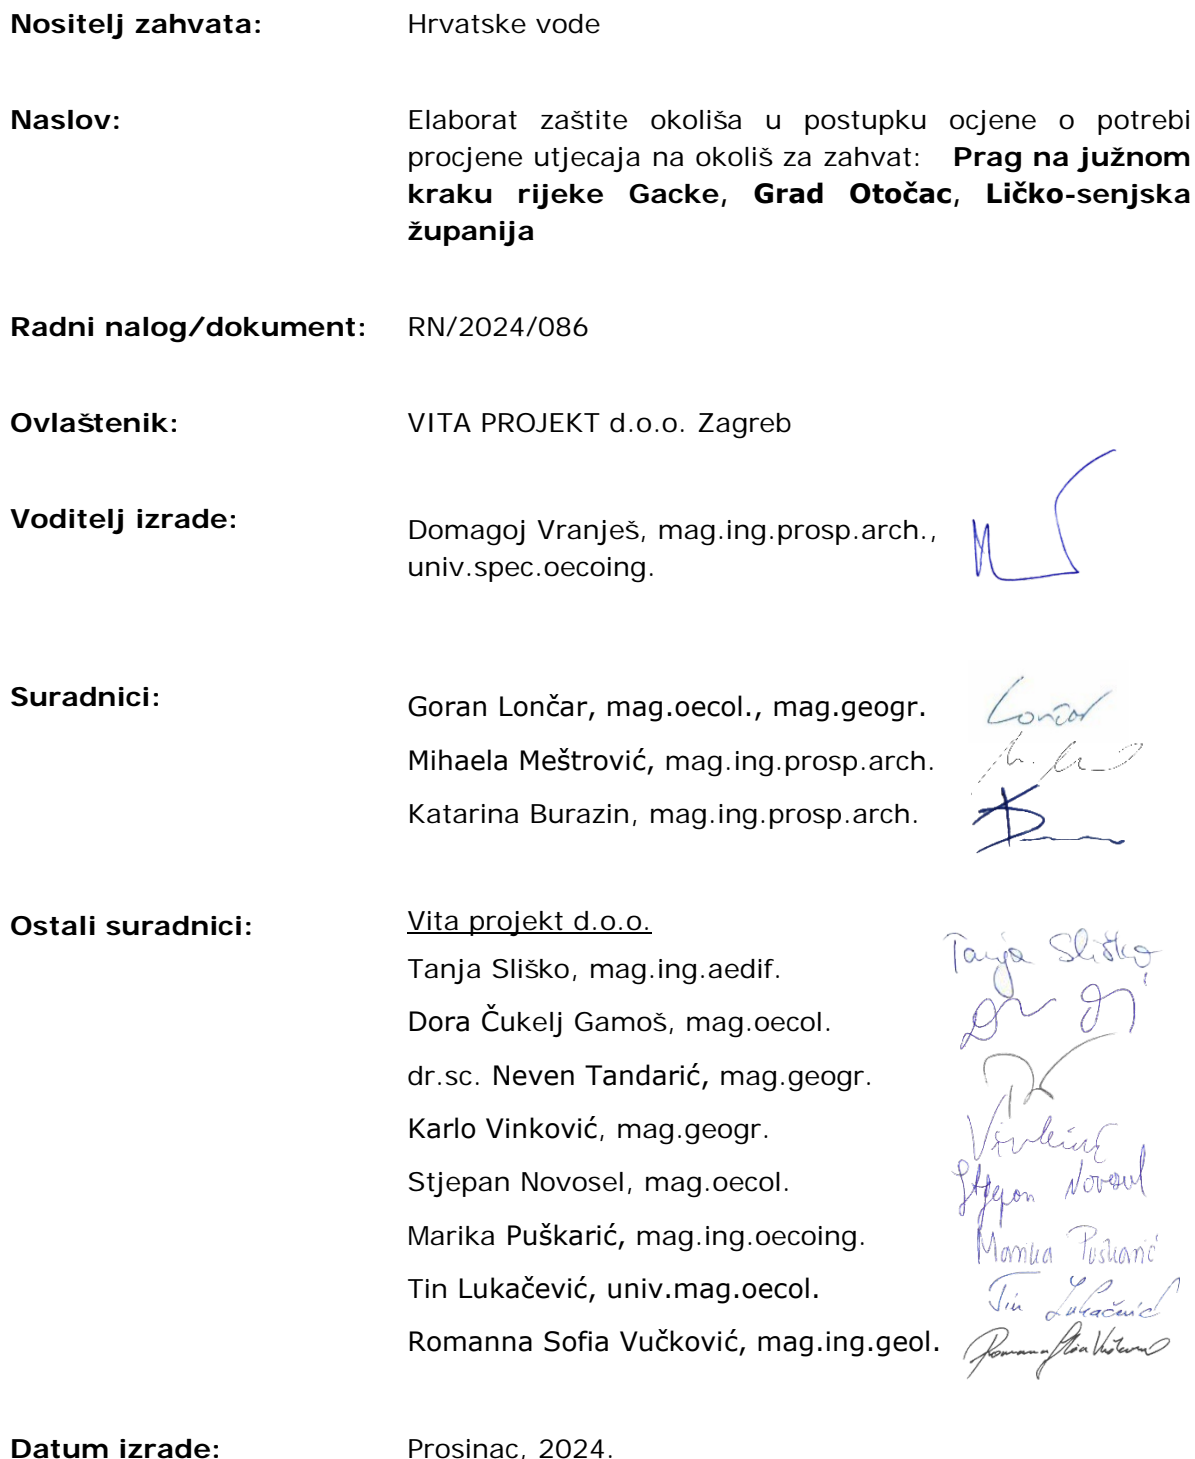 Nositelj zahvata: Hrvatske vode
Naslov: Elaborat zaštite okoliša u postupku ocjene o potrebi
procjene utjecaja na okoliš za zahvat: Prag na južnom
kraku rijeke Gacke, Grad Otočac, Ličko-senjska
županija
Radni nalog/dokument: RN/2024/086
Ovlaštenik: VITA PROJEKT d.o.o. Zagreb
Voditelj izrade: Domagoj Vranješ, mag.ing.prosp.arch.,
univ.spec.oecoing.
Suradnici: Goran Lončar, mag.oecol., mag.geogr. Lončar
Mihaela Meštrović, mag.ing.prosp.arch.
Katarina Burazin, mag.ing.prosp.arch.
Ostali suradnici: Vita projekt d.o.o.
Tanja Sliško, mag.ing.aedif. Tanja Sliško
Dora Čukelj Gamoš, mag.oecol.
dr.sc. Neven Tandarić, mag.geogr.
Karlo Vinković, mag.geogr. Vinković
Stjepan Novosel, mag.oecol. Stjepan Novosel
Marika Puškarić, mag.ing.oecoing. Marika Puškarić
Tin Lukačević, univ.mag.oecol. Tin Lukačević
Romanna Sofia Vučković, mag.ing.geol.
Datum izrade: Prosinac, 2024.